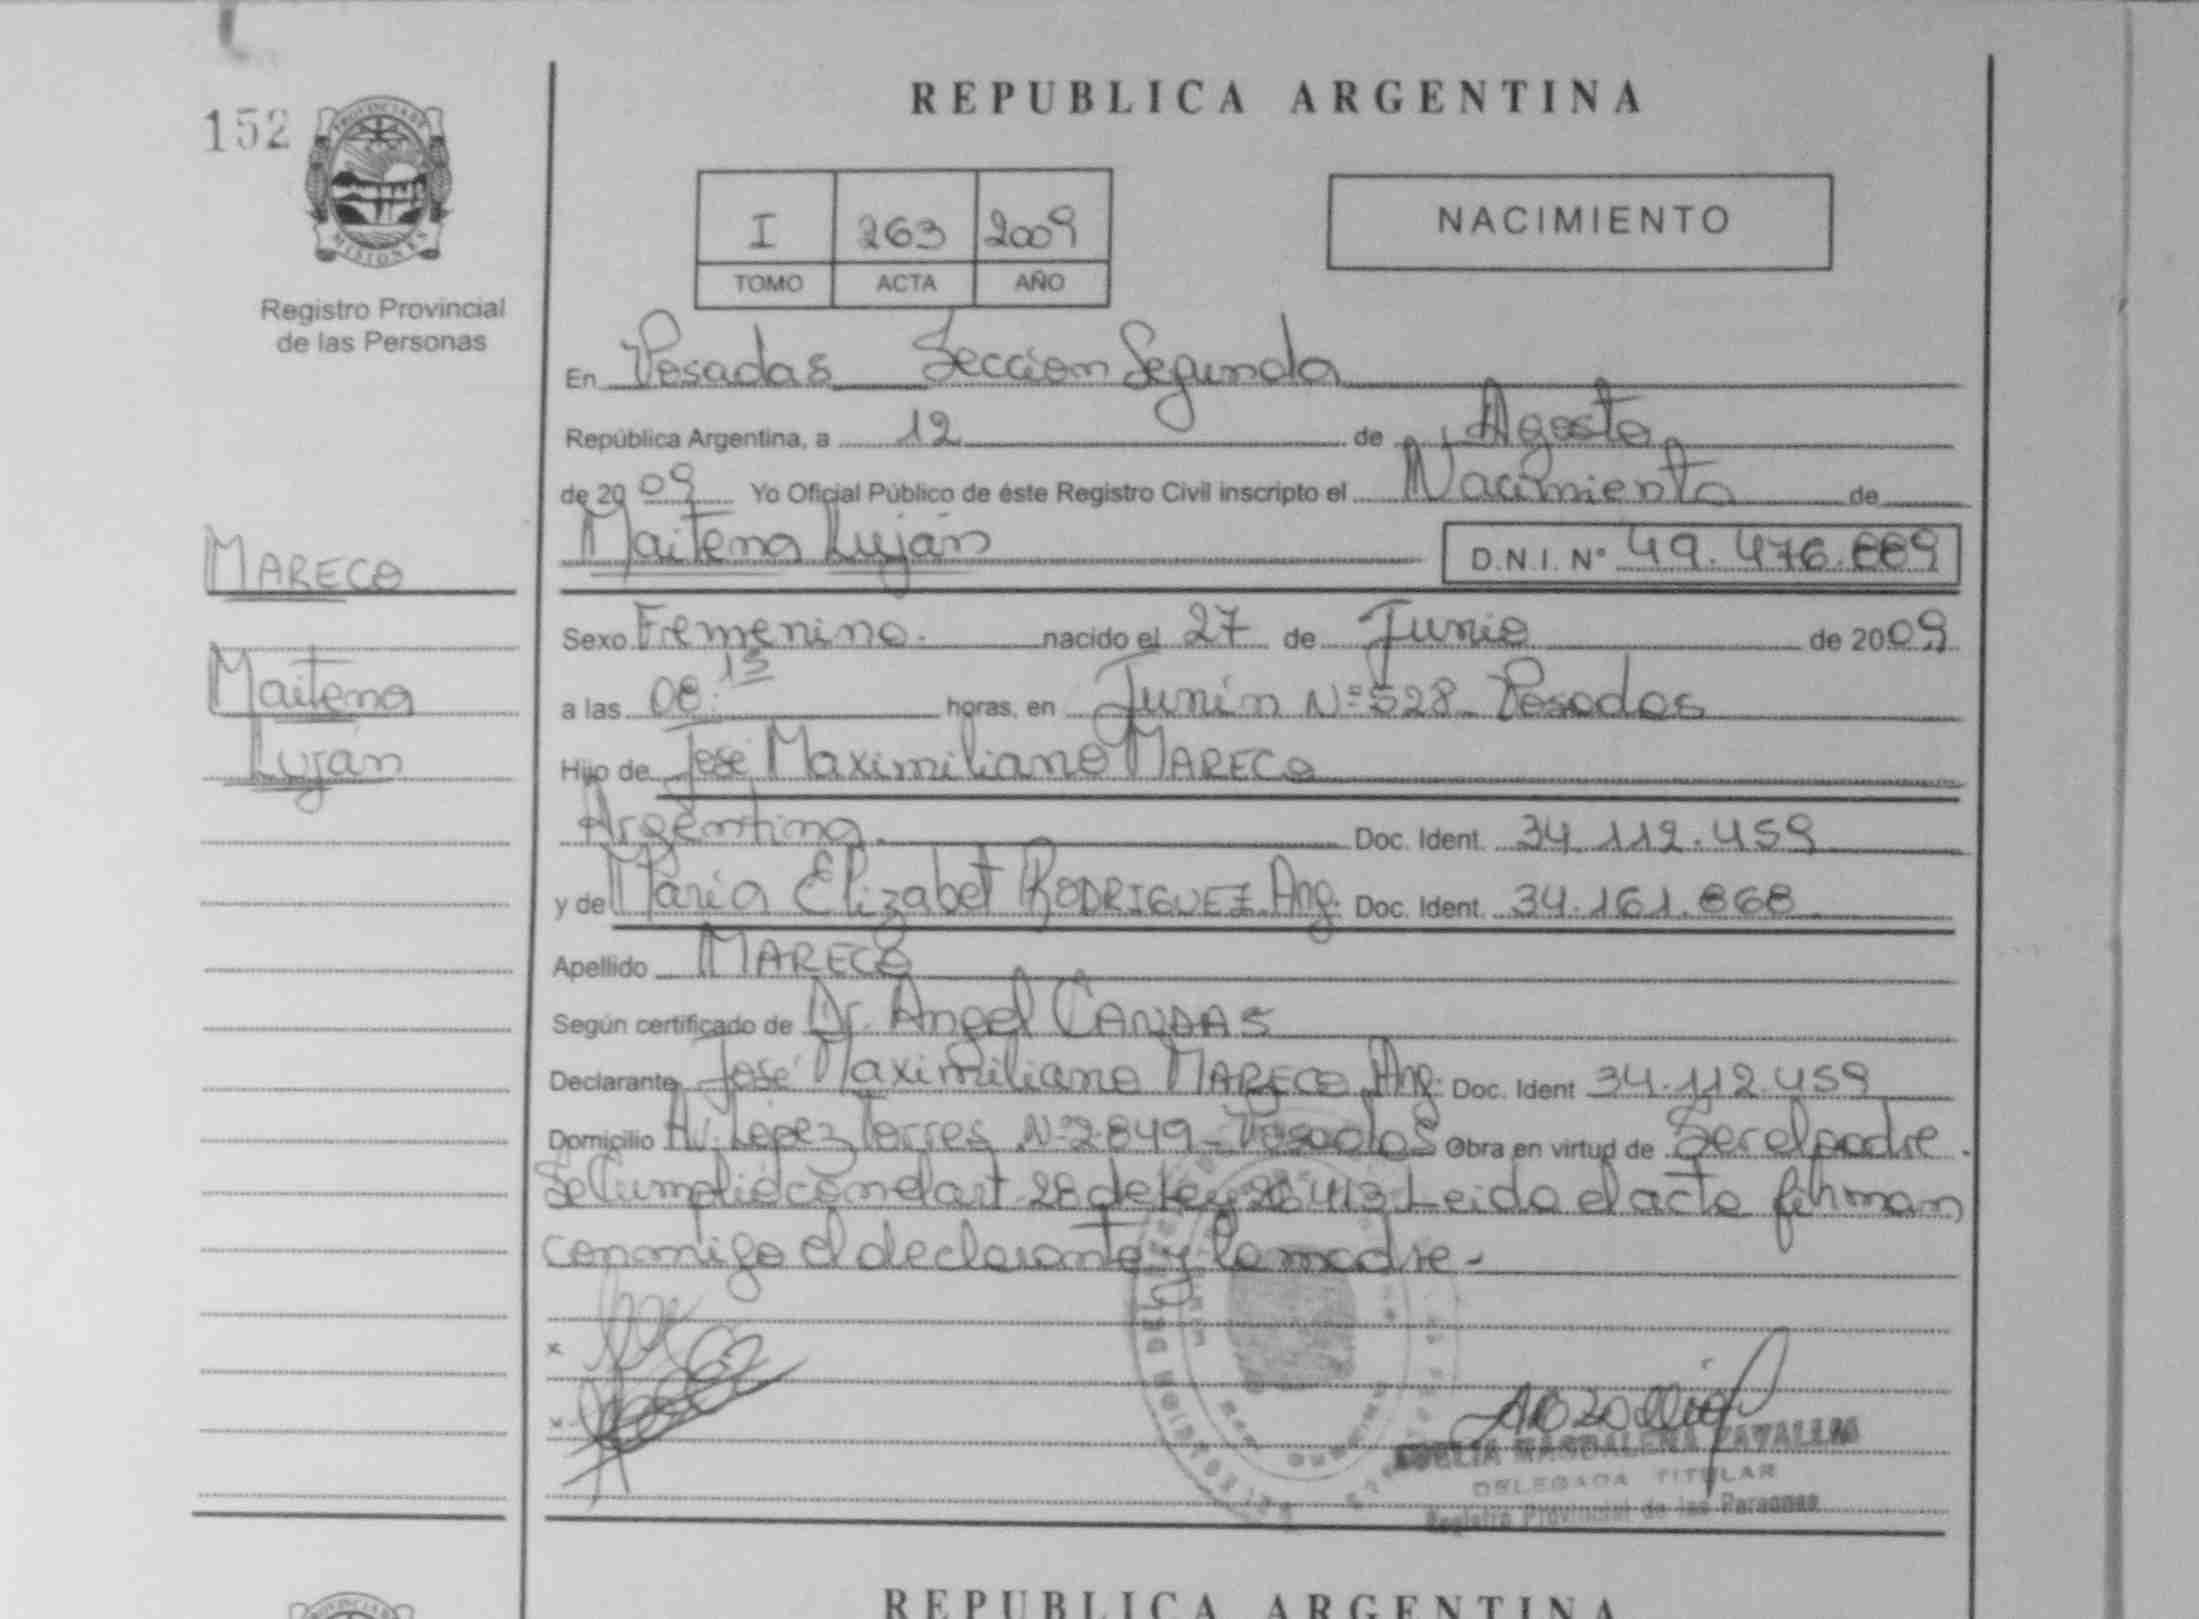 REPUBLICA ARGENTINA
152
PROVINCIA DE
MISIONES
Registro Provincial
de las Personas
I 263 2009
TOMO ACTA AÑO
NACIMIENTO
En Posadas Seccion Segunda
República Argentina, a 12 de Agosto
de 2009 Yo Oficial Público de éste Registro Civil inscripto el Nacimiento de
Maitena Luján
D.N.I. Nº 49.476.889
MARECO
Maitena
Luján
Sexo Femenino. nacido el 27 de Junio de 2009
a las 08:15 horas, en Junín Nº 528 - Posadas
Hijo de José Maximiliano MARECO
Argentino. Doc. Ident. 34.112.459
y de María Elizabet RODRIGUEZ Arg. Doc. Ident. 34.161.868
Apellido MARECO
Según certificado de Dr. Angel
Declarante José Maximiliano MARECO Arg. Doc. Ident 34.112.459
Domicilio Av. López Torres Nº 2849 - Posadas Obra en virtud de Ser el padre.
Se Cumplió con el art. 28 de Ley 26.413 Leido el acta firman
conmigo el declarante y la madre -
x
x
MAGDALENA
DELEGADA TITULAR
Registro Provincial de las Personas
REPUBLICA ARGENTINA